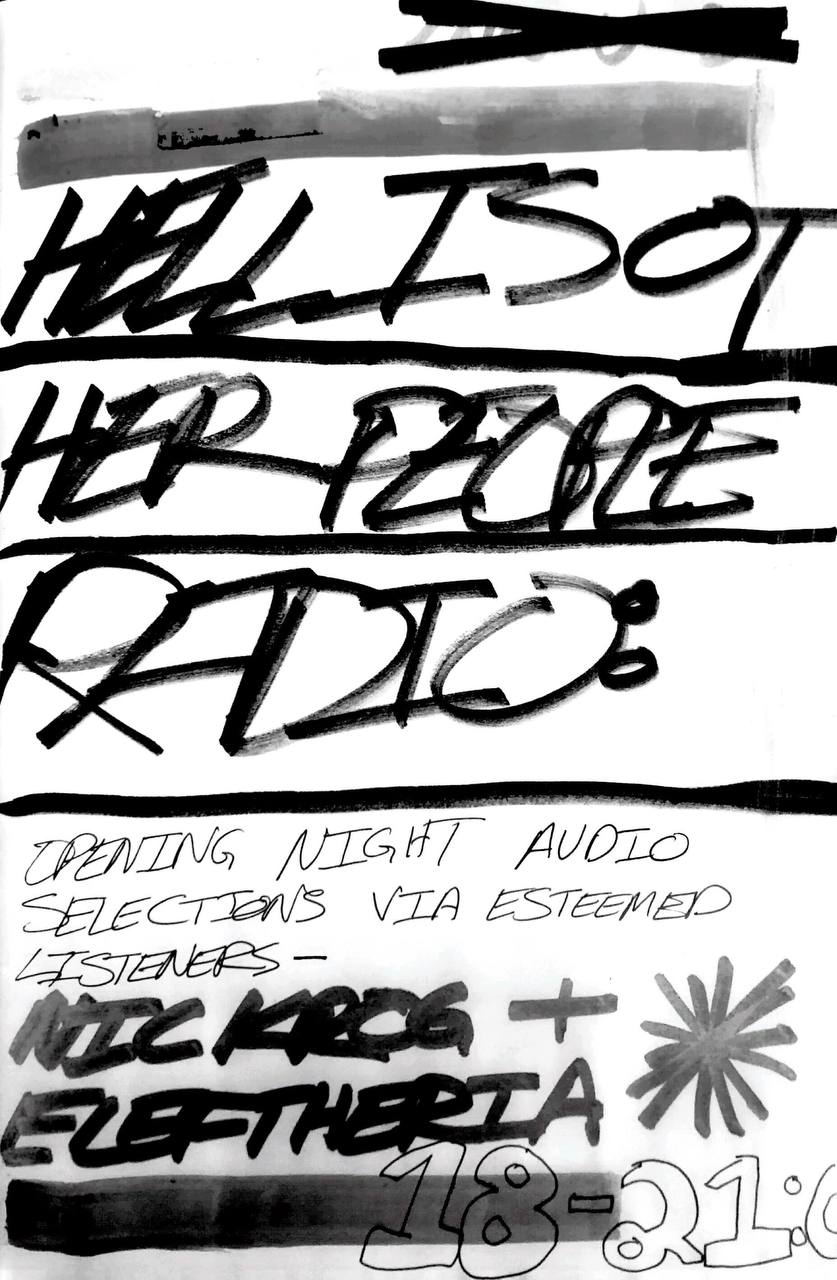 HELL IS OT
HER PEOPLE
RADIO:
OPENING NIGHT AUDIO
SELECTIONS VIA ESTEEMED
LISTENERS—
NIC KROG +
ELEFTHERIA
18-21:0